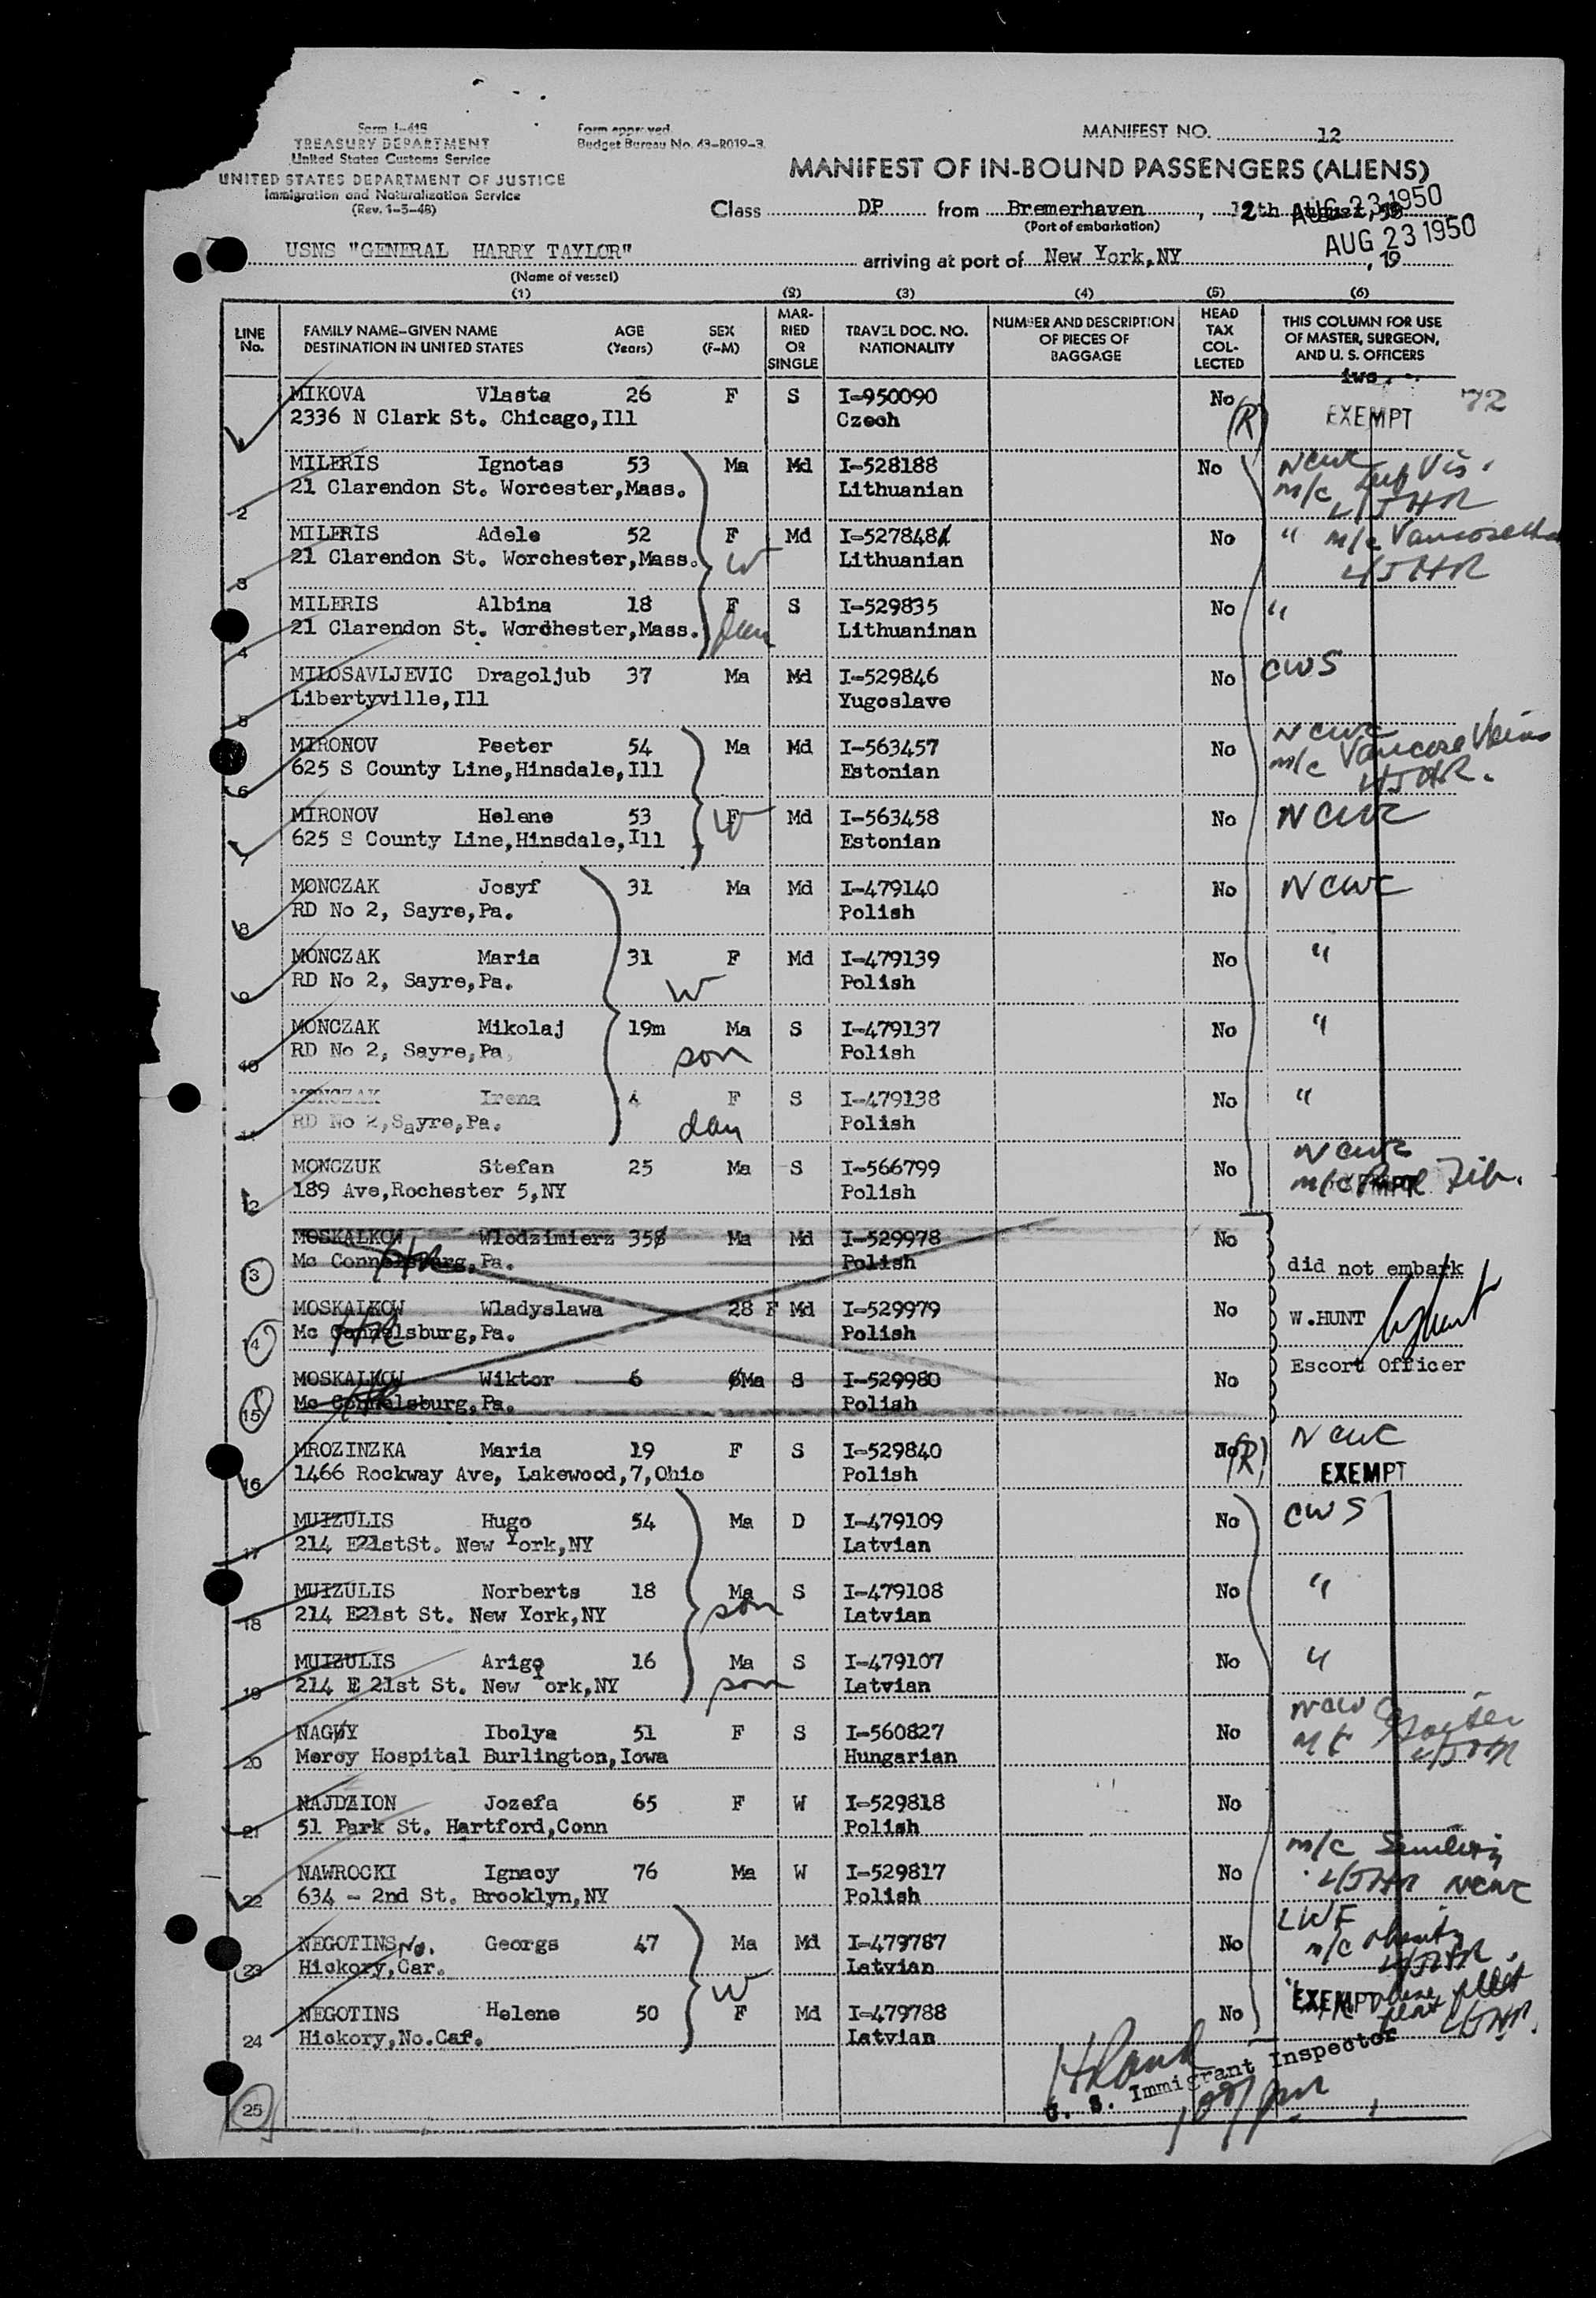 Form I-418
TREASURY DEPARTMENT
United States Customs Service
UNITED STATES DEPARTMENT OF JUSTICE
Immigration and Naturalization Service
(Rev. 1-5-48)
Form approved.
Budget Bureau No. 43-R019-3.
MANIFEST NO. 12
MANIFEST OF IN-BOUND PASSENGERS (ALIENS)
Class DP from Bremerhaven, 12th
(Port of embarkation)
AUG 23 1950
USNS "GENERAL HARRY TAYLOR" arriving at port of New York,NY , 19
AUG 23 1950
(Name of vessel)
(1) (2) (3) (4) (5) (6)
LINE No. FAMILY NAME-GIVEN NAME DESTINATION IN UNITED STATES AGE (Years) SEX (F-M) MARRIED OR SINGLE TRAVEL DOC. NO. NATIONALITY NUMBER AND DESCRIPTION OF PIECES OF BAGGAGE HEAD TAX COLLECTED THIS COLUMN FOR USE OF MASTER, SURGEON, AND U. S. OFFICERS
MIKOVA Vlasta 26 F S I-950090 No (R) EXEMPT 72
2336 N Clark St. Chicago,Ill Czech
MILERIS Ignotas 53 Ma Md I-528188 No NCWC
2 21 Clarendon St. Worcester,Mass. Lithuanian m/c
MILERIS Adele 52 F Md I-527848 No " m/c
3 21 Clarendon St. Worchester,Mass. W Lithuanian
MILERIS Albina 18 F S I-529835 No "
4 21 Clarendon St. Worchester,Mass. Lithuaninan
MILOSAVLJEVIC Dragoljub 37 Ma Md I-529846 No CWS
5 Libertyville,Ill Yugoslave
MIRONOV Peeter 54 Ma Md I-563457 No NCWC
6 625 S County Line,Hinsdale,Ill Estonian m/c
MIRONOV Helene 53 F W Md I-563458 No NCWC
7 625 S County Line,Hinsdale,Ill Estonian
MONCZAK Josyf 31 Ma Md I-479140 No NCWC
8 RD No 2, Sayre,Pa. Polish
MONCZAK Maria 31 F Md I-479139 No "
9 RD No 2, Sayre,Pa. W Polish
MONCZAK Mikolaj 19m Ma S I-479137 No "
10 RD No 2, Sayre,Pa. son Polish
MONCZAK Irena 4 F S I-479138 No "
11 RD No 2,Sayre,Pa. dau Polish
MONCZUK Stefan 25 Ma S I-566799 No NCWC
12 189 Ave,Rochester 5,NY Polish m/c EXEMPT
MOSKALKOW Wlodzimierz 358 Ma Md I-529978 No
13 Mc Connelsburg,Pa. Polish did not embark
MOSKALKOW Wladyslawa 28 F Md I-529979 No W.HUNT
14 Mc Connelsburg,Pa. Polish
MOSKALKOW Wiktor 6 6Ma S I-529980 No Escort Officer
15 Mc Connelsburg,Pa. Polish
MROZINZKA Maria 19 F S I-529840 No (R) NCWC
16 1466 Rockway Ave, Lakewood,7,Ohio Polish EXEMPT
MUIZULIS Hugo 54 Ma D I-479109 No CWS
17 214 E21stSt. New York,NY Latvian
MUIZULIS Norberts 18 Ma S I-479108 No "
18 214 E21st St. New York,NY son Latvian
MUIZULIS Arigo 16 Ma S I-479107 No "
19 214 E 21st St. New York,NY son Latvian
NAGY Ibolya 51 F S I-560827 No NCWC
20 Mercy Hospital Burlington,Iowa Hungarian
NAJDZION Jozefa 65 F W I-529818 No
21 51 Park St. Hartford,Conn Polish
NAWROCKI Ignacy 76 Ma W I-529817 No m/c
22 634 - 2nd St. Brooklyn,NY Polish NCWC
NEGOTINS Georgs 47 Ma Md I-479787 No LWF
23 Hickory,No. Car. Latvian m/c
NEGOTINS Helene 50 W F Md I-479788 No EXEMPT
24 Hickory,No.Car. Latvian
U. S. Immigrant Inspector
25